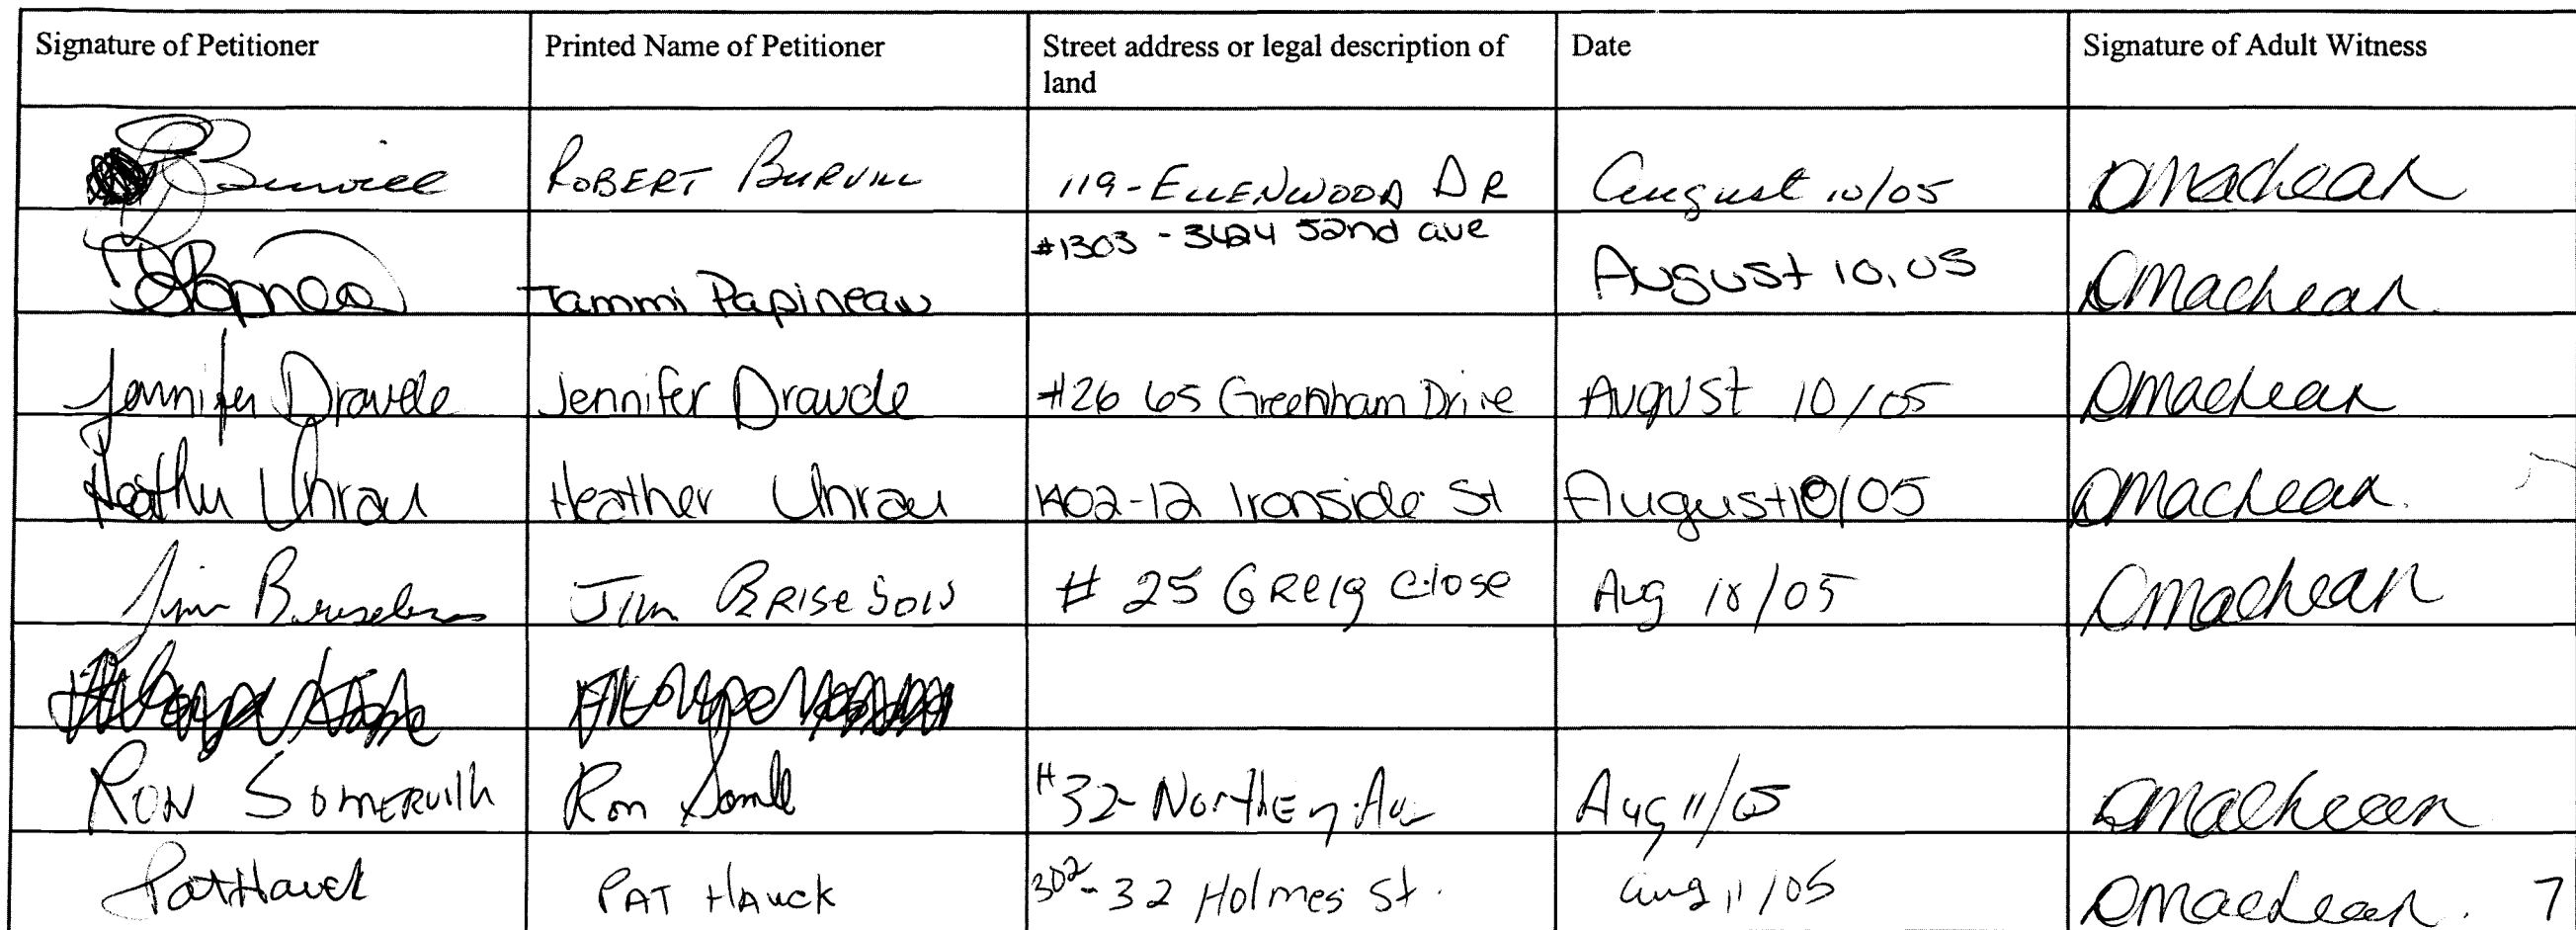 Signature of Petitioner Printed Name of Petitioner Street address or legal description of land Date Signature of Adult Witness
Burvill ROBERT BURVILL 119-ELLENWOOD DR August 10/05 DMacLean
Tammi Papineau #1303 - 3424 52nd ave August 10, 05 DMacLean
Jennifer Dravde Jennifer Dravde #26 65 Greenham Drive August 10/05 DMacLean
Heather Unrau Heather Unrau 1402-12 Ironside St August 10/05 DMacLean.
Jim Brisebois JIM BRISEBOIS # 25 GREIG Close Aug 10/05 DMacLean
RON SOMERVILL Ron #32- Northey Ave Aug 11/05 DMacLean
Pat Hauck PAT HAUCK 302-32 Holmes St. Aug 11/05 DMacLean. 7